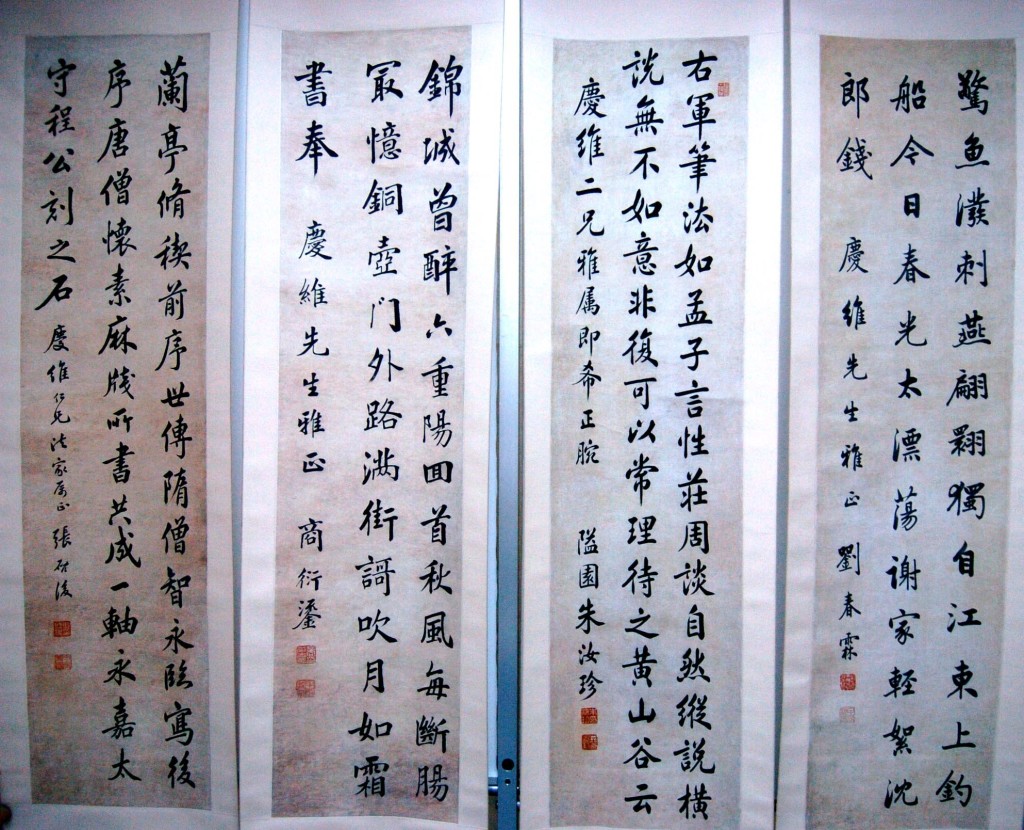 驚魚潑刺燕翩翾獨自江東上釣
船今日春光太漂蕩谢家輕絮沈
郎錢 慶維先生雅正 劉春霖
右軍筆法如孟子言性莊周談自然縱說橫
說無不如意非復可以常理待之黃山谷云
慶維二兄雅属即希正腕 隘園朱汝珍
錦城曾醉六重陽回首秋風每斷腸
冣憶銅壺门外路满街謌吹月如霜
書奉 慶維先生雅正 商衍鎏
蘭亭脩稧前序世傳隋僧智永臨寫後
序唐僧懷素麻牋所書共成一軸永嘉太
守程公刻之石 慶維仁兄法家属正 張啓後